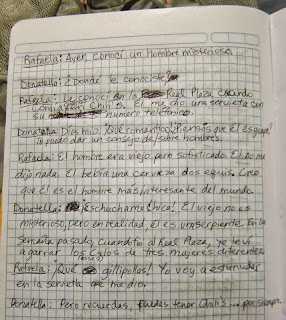 Rafaela: Ayer, conocí un hombre misterioso.
Donatella: ¿Donde le conociste?
Rafaela: Le conocí en la Real Plaza cuando
comía en Chili's. Él me dio una servieta con
su numero telefónico.
Donatella: Dios mio. ¡Que romantico! ¿Piensas que él es guapo?
Te puedo dar un consejo de/sobre hombres.
Rafaela: El hombre era viejo pero sofisticado. El no me
dijo nada. El bebía una cerveza dos equis. Creo
que él es el hombre más interesante del mundo.
Donatella: ¡Escuchame chica! El viejo no es
misterioso, pero en realidad él es un serpiente. En la
semana pasada, cuando fui al Real Plaza, yo le vi
a agarrar los culos de tres mujeres diferentes.
Rafaela: ¡Que gillipollas! Yo voy a estornudar
en la servieta que me dio.
Donatella: Pero recuerdas, puedes tener Chili's... por siempre.